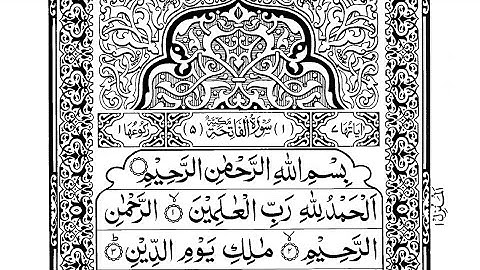 اٰيَاتُهَا ٧ (١) سُوْرَةُ الْفَاتِحَةِ مَكِّيَّةٌ (٥) رُكُوْعُهَا ١
بِسْمِ اللهِ الرَّحْمٰنِ الرَّحِيْمِ
اَلْحَمْدُ لِلّٰهِ رَبِّ الْعٰلَمِيْنَ ١ الرَّحْمٰنِ
الرَّحِيْمِ ٢ مٰلِكِ يَوْمِ الدِّيْنِ ٣